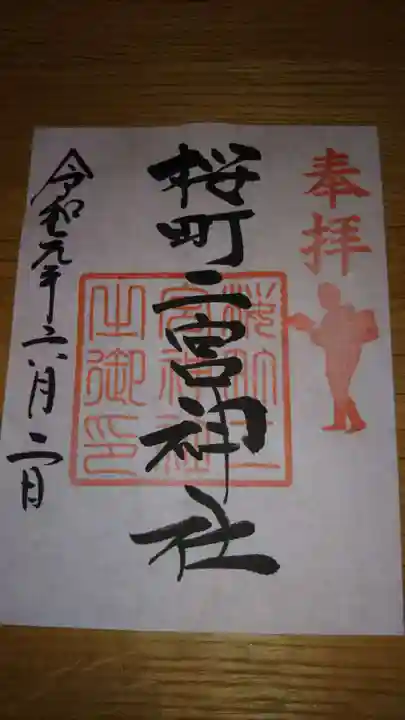 奉拝
桜町二宮神社
桜町二
宮神社
之御印
令和元年六月二日